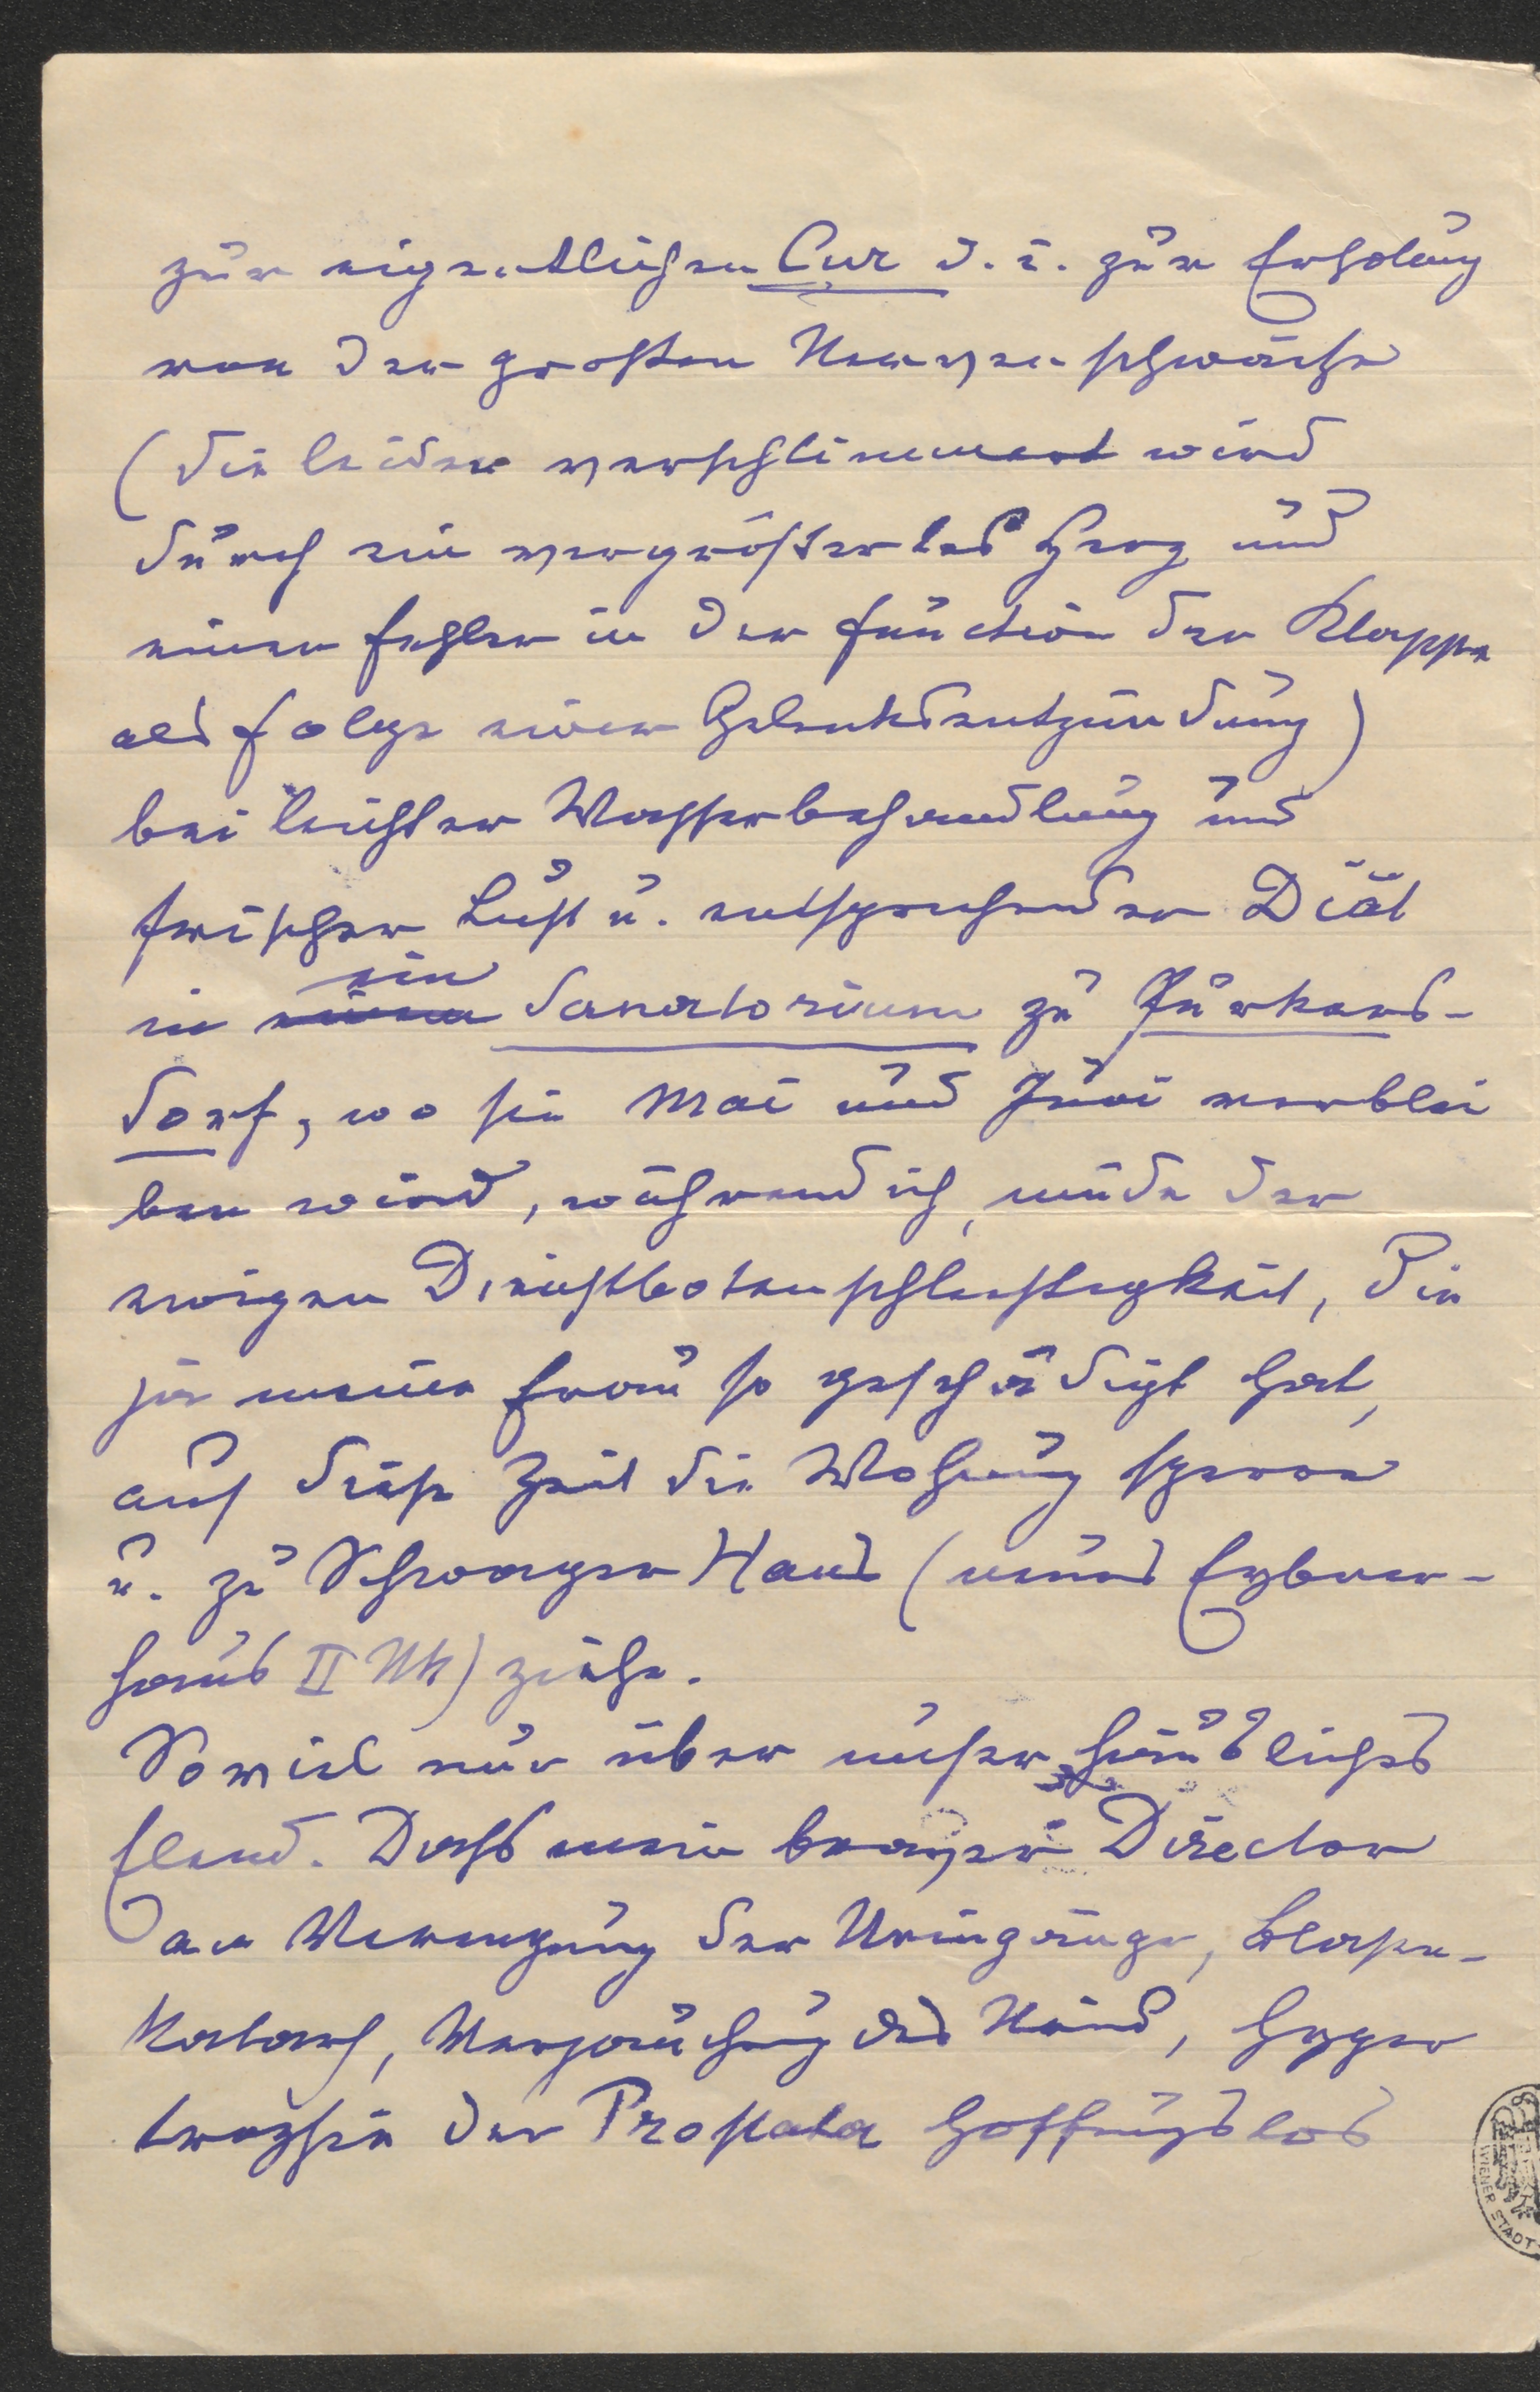 zur eigentlichen Cur d. i. zur Erholung
von der grossen Nervenschwäche
(die leider verschlimmert wird
durch ein vergrössertes Herz und
einen Fehler in der Function der Klappe
als Folge einer Gelenksentzündung)
bei leichter Wasserbehandlung und
frischer Luft u. entsprechender Diät
in ein Sanatorium zu Purkers-
dorf, wo sie Mai und Juni verblei
ben wird, während ich, müde der
ewigen Dienstbotenschlechtigkeit, die
ja meine Frau so geschädigt hat,
auf diese Zeit die Wohnung sperre
u. zu Schwager Haus (neues
haus II) ziehe.
Soviel nur über unser häusliches
Elend. Dass mein braver Director
an Verengung der Uringänge, Blasen-
Katarrh, Verjauchung des Urins, Hyper
trophie der Prostata hoffnungslos
WIENER STADT